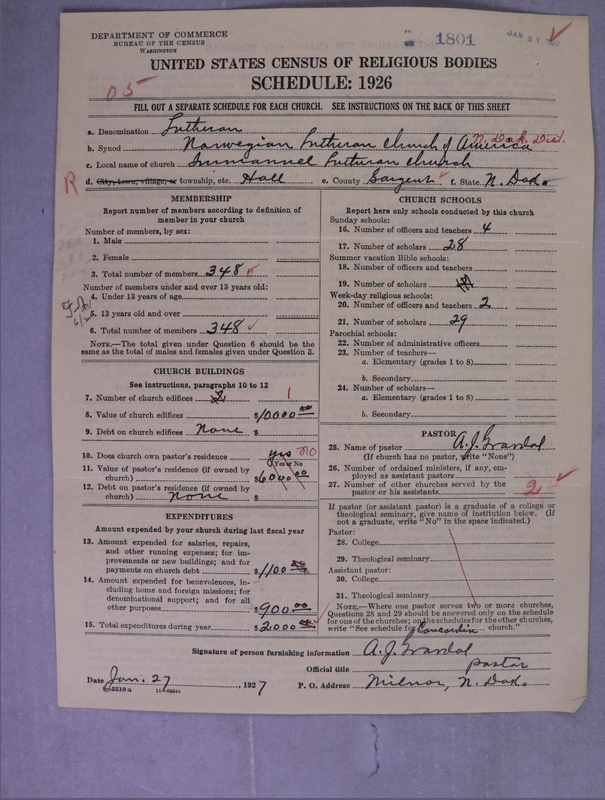 DEPARTMENT OF COMMERCE
BUREAU OF THE CENSUS
WASHINGTON
1801
JAN 31
UNITED STATES CENSUS OF RELIGIOUS BODIES
SCHEDULE: 1926
05
FILL OUT A SEPARATE SCHEDULE FOR EACH CHURCH. SEE INSTRUCTIONS ON THE BACK OF THIS SHEET
a. Denomination Lutheran
b. Synod Norwegian Lutheran Church of America N. Dak. Dist.
c. Local name of church Immanuel Lutheran church
R d. City, town, village, or township, etc. Hall e. County Sargent f. State N. Dak.
MEMBERSHIP
Report number of members according to definition of
member in your church
Number of members, by sex:
1. Male
2. Female
3. Total number of members 348
Number of members under and over 13 years old:
4. Under 13 years of age
5. 13 years old and over
6. Total number of members 348
NOTE.—The total given under Question 6 should be the
same as the total of males and females given under Question 3.
CHURCH BUILDINGS
See instructions, paragraphs 10 to 12
7. Number of church edifices 2 1
8. Value of church edifices $10000.00
9. Debt on church edifices None $
10. Does church own pastor's residence? yes no
Yes or No
11. Value of pastor's residence (if owned by
church) $6000.00
12. Debt on pastor's residence (if owned by
church) none $
EXPENDITURES
Amount expended by your church during last fiscal year
13. Amount expended for salaries, repairs,
and other running expenses; for im-
provements or new buildings; and for
payments on church debt $1100.00
14. Amount expended for benevolences, in-
cluding home and foreign missions; for
denominational support; and for all
other purposes $900.00
15. Total expenditures during year $2000.00
CHURCH SCHOOLS
Report here only schools conducted by this church
Sunday schools:
16. Number of officers and teachers 4
17. Number of scholars 28
Summer vacation Bible schools:
18. Number of officers and teachers
19. Number of scholars
Week-day religious schools:
20. Number of officers and teachers 2
21. Number of scholars 29
Parochial schools:
22. Number of administrative officers
23. Number of teachers—
a. Elementary (grades 1 to 8)
b. Secondary
24. Number of scholars—
a. Elementary (grades 1 to 8)
b. Secondary
PASTOR
25. Name of pastor A. J.
(If church has no pastor, write "None")
26. Number of ordained ministers, if any, em-
ployed as assistant pastors
27. Number of other churches served by the
pastor or his assistants 2
If pastor (or assistant pastor) is a graduate of a college or
theological seminary, give name of institution below. (If
not a graduate, write "No" in the space indicated.)
Pastor:
28. College
29. Theological seminary
Assistant pastor:
30. College
31. Theological seminary
NOTE.—Where one pastor serves two or more churches,
Questions 28 and 29 should be answered only on the schedule
for one of the churches; on the schedules for the other churches,
write "See schedule for Concordia church."
Signature of person furnishing information A. J.
Official title pastor
Date Jan. 27, 1927 P. O. Address Milnor, N. Dak.